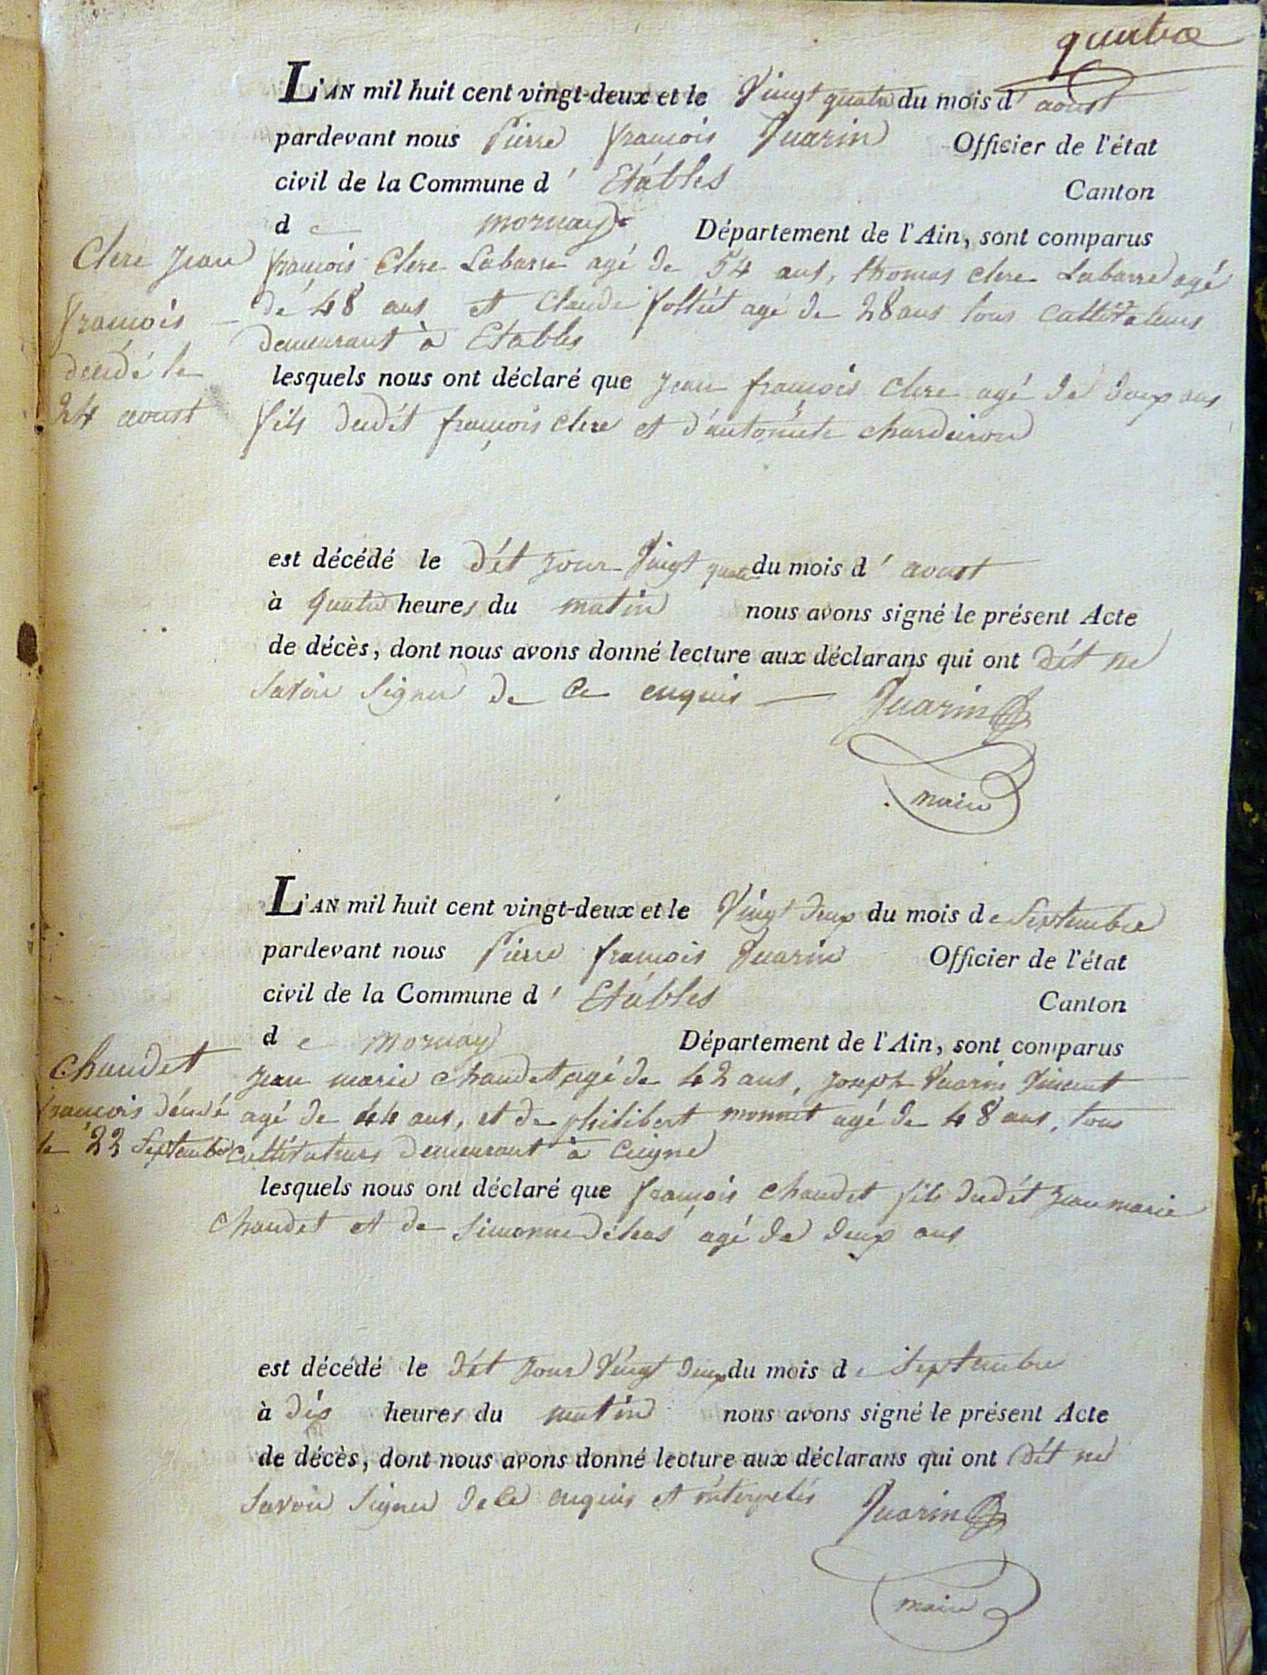 quatre
L'AN mil huit cent vingt-deux et le Vingt quatre du mois d' aoust
pardevant nous Pierre françois Juarin Officier de l'état
civil de la Commune d' Etables Canton
d e mornay Département de l'Ain, sont comparus
Clere Jean
françois
décédé le
24 aoust
françois Clere Labarre agé de 54 ans, thomas clere Labarre agé
de 48 ans et Claude agé de 28 ans tous cultivateurs
demeurant à Etables
lesquels nous ont déclaré que jean françois clere agé de deux ans
fils dudit françois clere et d'antoinete
est décédé le dit jour Vingt quatre du mois d' aoust
à quatre heures du matin nous avons signé le présent Acte
de décès, dont nous avons donné lecture aux déclarans qui ont dit ne
savoir signer de ce enquis Juarin
maire
L'AN mil huit cent vingt-deux et le Vingt deux du mois de Septembre
pardevant nous Pierre françois Juarin Officier de l'état
civil de la Commune d' Etables Canton
d e mornay Département de l'Ain, sont comparus
chaudet
françois décédé
le 22 Septembre
jean marie chaudet agé de 42 ans, joseph Juarin Vincent
agé de 44 ans, et de philibert monnet agé de 48 ans, tous
cultivateurs demeurant à Ceigne
lesquels nous ont déclaré que françois chaudet fils dudit jean marie
chaudet et de Simonne agé de deux ans
est décédé le dit jour Vingt deux du mois de Septembre
à dix heures du matin nous avons signé le présent Acte
de décès, dont nous avons donné lecture aux déclarans qui ont dit ne
savoir signer de ce enquis et interpelés Juarin
maire